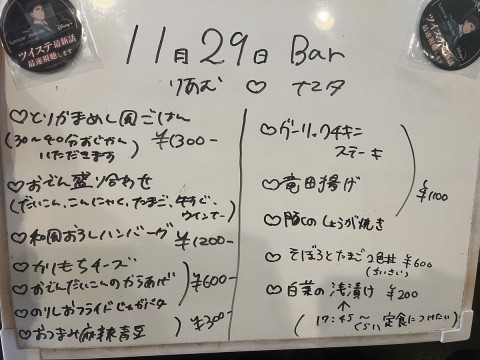 ツイステ最新話
最速視聴します
11月29日 Bar
りあむ ♡ ナユタ
♡とりかまめし風ごはん
(30〜40分おじかん
いただきます) ¥1300-
♡おでん盛り合わせ
(だいこん、こんにゃく、たまご、牛すじ、
ウインナー)
♡和風おろしハンバーグ ¥1200-
♡かりもちチーズ
♡おでんだいこんのからあげ ¥600-
♡のりしおフライドじゃがバタ
♡おつまみ麻辣青豆 ¥300-
♡ガーリックチキン
ステーキ
♡竜田揚げ
¥1100
♡豚しょうが焼き
♡そぼろとたまご2色丼 ¥600
(ちいさい)
♡白菜の浅漬け ¥200
↑
(17:45〜くらい 定食につけたい)